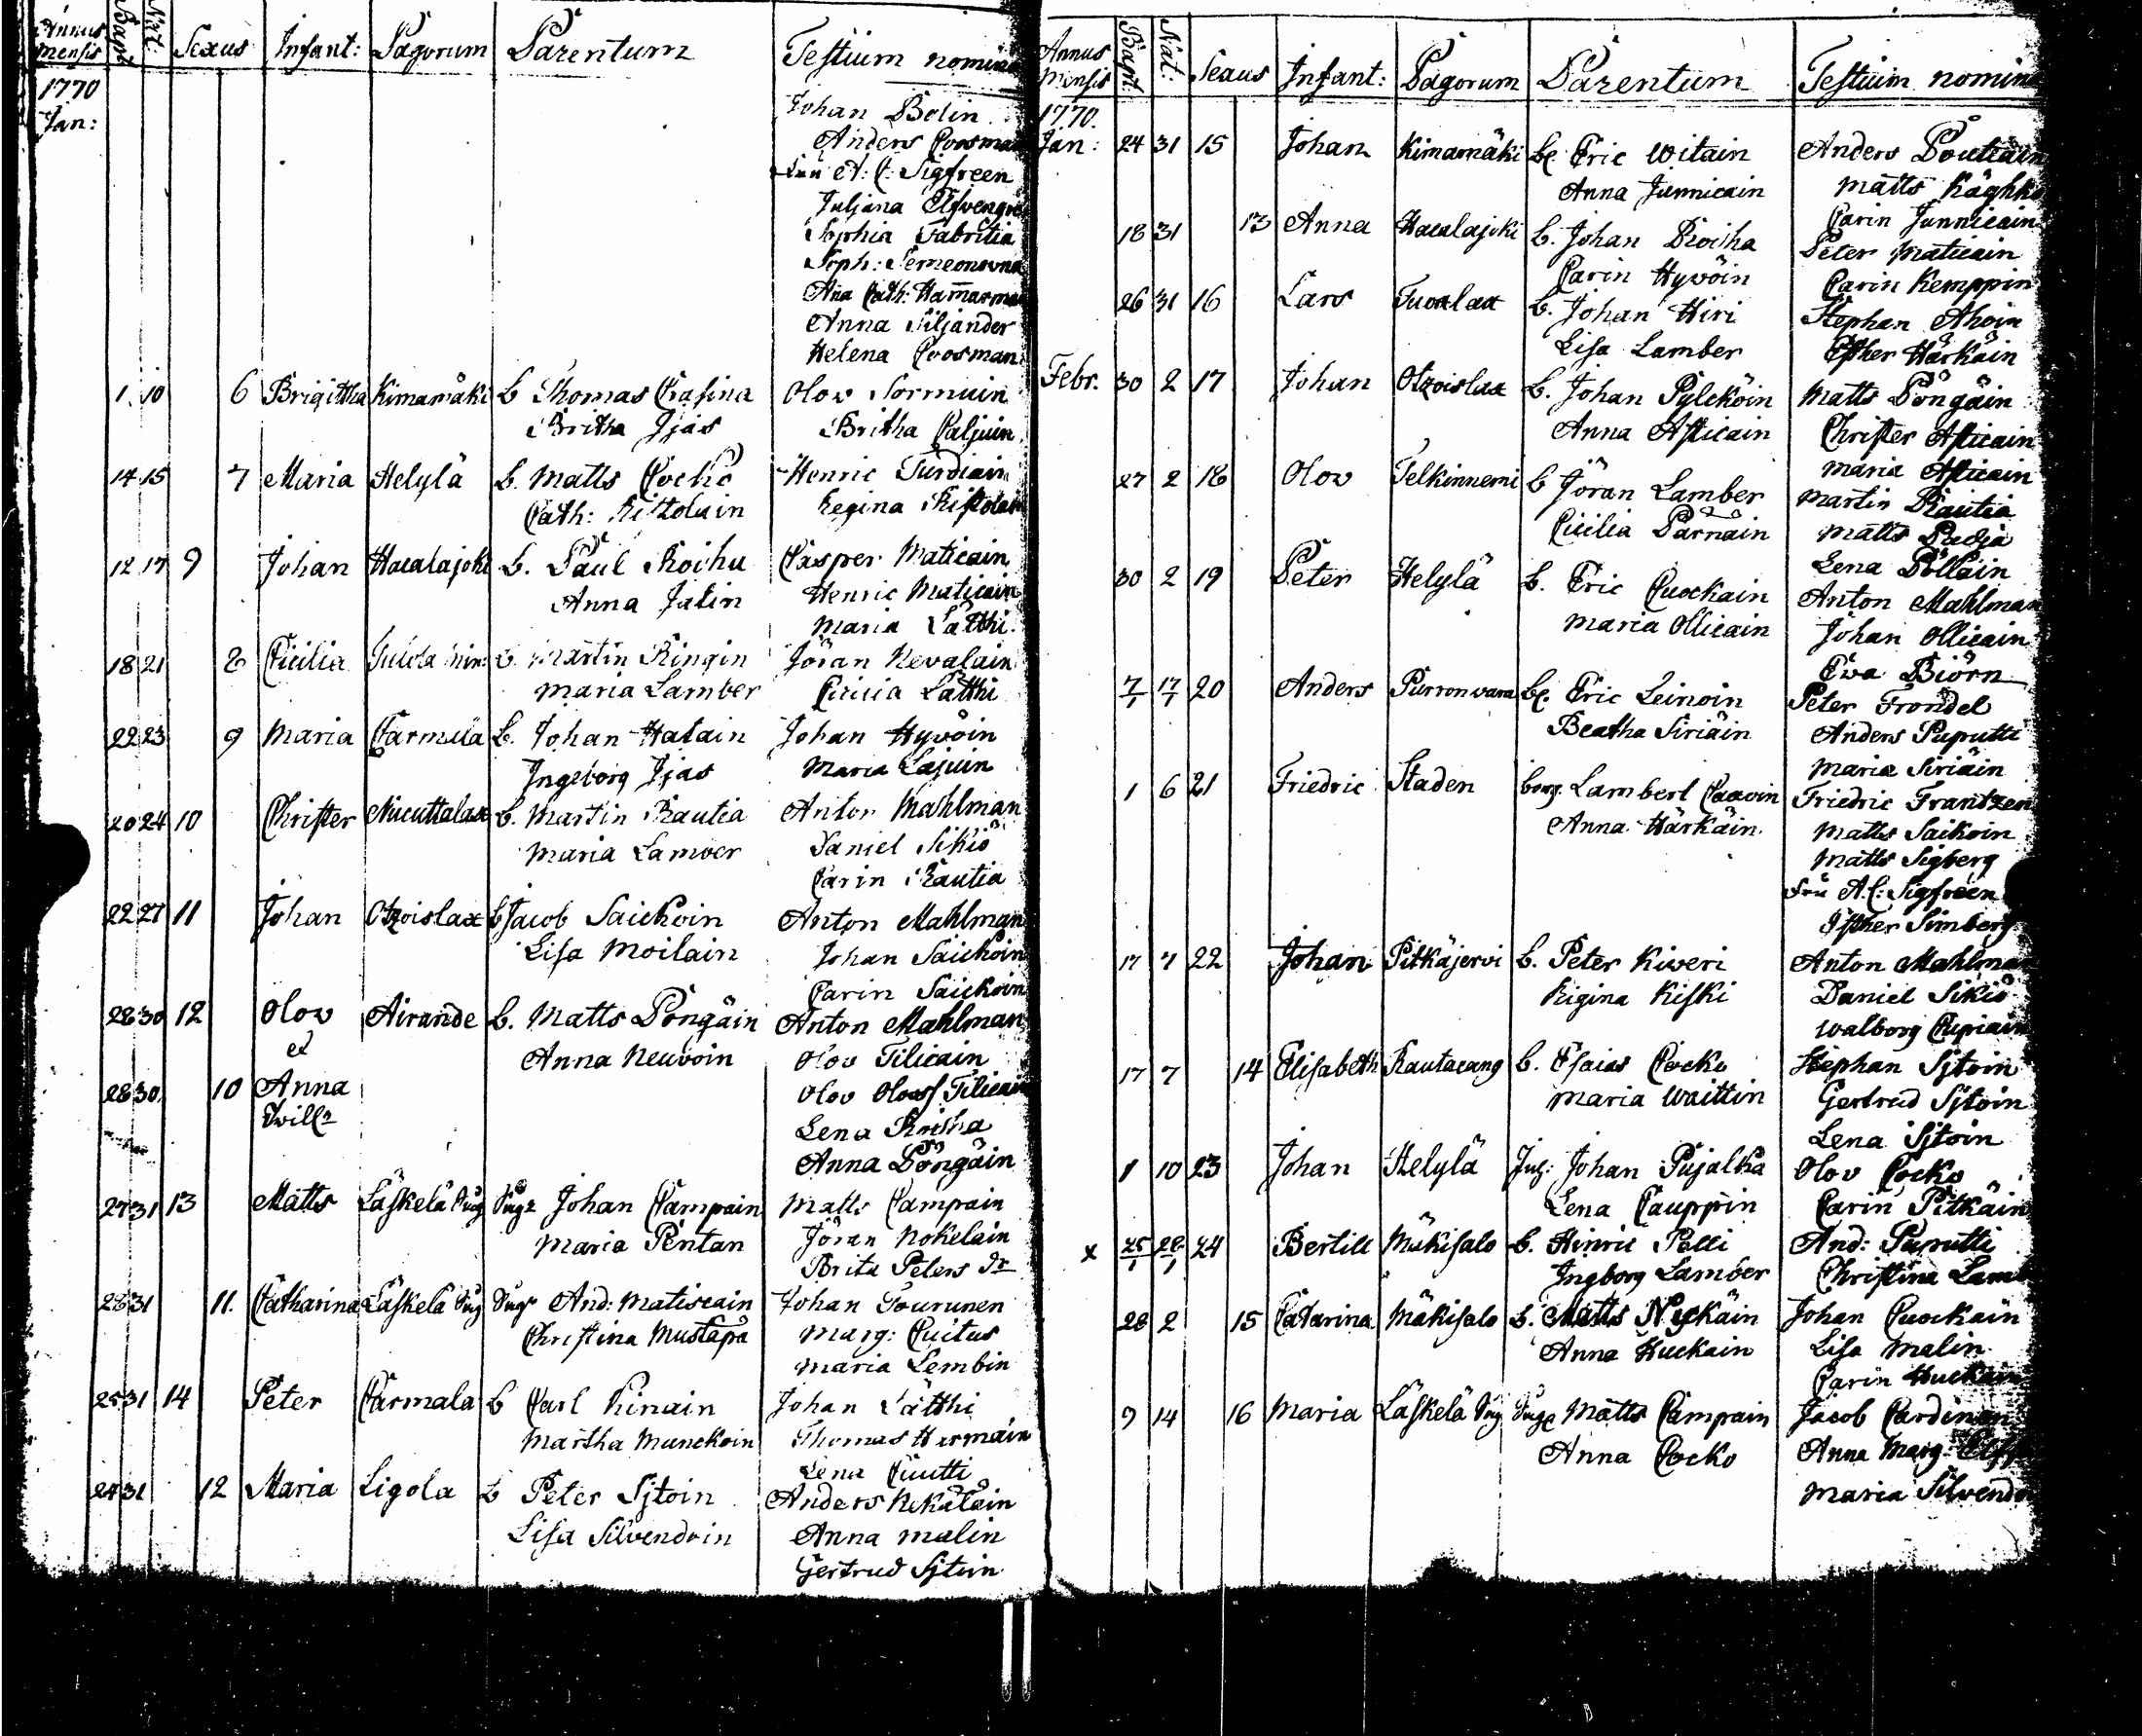 Annus mensis Bapt. Nat: Sexus Infant: Pagorum Parentum Testium nomina
1770
Jan:
Johan Bolin
Anders Coosman
Fru A: C: Sigfreen
Juljana
Sophia Fabritia
Soph: Semeonovna
Aña Cath:
Anna Siljander
Helena Coosman
1 10 6 Brigittha Kimamäki b Thomas Olov Sormuin
Britha Ijäs Britha Paljuin
14 15 7 Maria Helylä b. Matts Cocko Henric Turdiain
Cath: Ristolain Regina Ristolain
12 17 9 Johan Hacalajoki b. Paul Roihu Casper Maticain
Anna Jalin Henric Maticain
Maria Lätthi
18 21 8 Cicilia b. Martin Ringin Jöran Nevalain
Maria Lamber Cicilia Lätthi
22 23 9 Maria Carmala b. Johan Halain Johan Hyvöin
Ingeborg Ijäs Maria Lajuin
20 24 10 Christer Nucuttalax b. Martin Rautia Anton Mahlman
Maria Lamber Daniel Sikiö
Carin Rautia
22 27 11 Johan Otzoislax b Jacob Saickoin Anton Mahlman
Lisa Moilain Johan Saickoin
Carin Saickoin
28 30 12 Olov Airande b. Matts Pöngäin Anton Mahlman
et Anna Neuvoin Olov Tilicain
28 30 10 Anna Olov Olofss Tilicain
Twill:r Lena Roiha
Anna Pöngäin
27 31 13 Matts Läskelä Johan Campain Matts Campain
Maria Pentan Jöran Nokelain
Brita Peters dr
28 31 11. Catharina Läskelä And: Matiscain Johan Tourunen
Christina Mustapä Marg: Cuitus
Maria Lembin
25 31 14 Peter Carmala b Carl Kinain Johan Lätthi
Martha Munckoin Thomas Hurmain
Lena Cuutti
24 31 12 Maria Ligola b Peter Sjtoin Anders Nekäläin
Lisa Silvendoin Anna Malin
Gertrud Sjtoin
Annus Mensis Bapt: Nat: Sexus Infant: Pagorum Parentum Testium nomina
1770.
Jan: 24 31 15 Johan Kimamäki Eric Witain Anders Poutiain
Anna Junnicain Matts
Carin Junnicain
18 31 13 Anna Hacalajoki b. Johan Roiha Peter Maticain
Carin Hyvöin Carin Kemppin
26 31 16 Lars Tuoxlax b. Johan Hiri Stephan Ahoin
Lisa Lamber Esther Härkäin
Febr. 30 2 17 Johan Otzoislax b. Johan Pylcköin Matts Pöngäin
Anna Asticain Christer Asticain
Maria Asticain
27 2 18 Olov Telkinnemi b Jöran Lamber Martin Rautia
Cicilia Pärnäin Matts Padja
Lena Pölläin
30 2 19 Peter Helylä b. Eric Cuockain Anton Mahlman
Maria Ollicain Johan Ollicain
Eva Biörn
7/1 17/1 20 Anders Purronvara Eric Leinoin Peter Frondel
Beatha Siriäin Anders Puputti
Maria Siriäin
1 6 21 Friedric Staden borg. Lambert Friedric Frantzen
Anna Härkäin. Matts Saikoin
Matts Sigberg
Fru A.C: Sigfreen
Esther Simberg
17 7 22 Johan Pitkäjervi b. Peter Kiveri Anton Mahlman
Rigina Kiski Daniel Sikiö
Walborg Cupiain
17 7 14 Elisabeth Rautacang b. Esaias Cocko Stephan Sjtoin
Maria Waittin Gertrud Sjtoin
Lena Sjtoin
1 10 23 Johan Helylä Johan Pujalka Olov Cocko
Lena Cauppin Carin Pitkäin
x 25/1 28/1 24 Bertill Mäkisalo b. Hinric Polli And: Puputti
Ingborg Lamber Christina Lamb
28 2 15 Catarina Mäkisalo b. Matts Nyckäin Johan Cuockain
Anna Huckain Lisa Malin
Carin Huckain
9 14 16 Maria Läskelä Matts Campain Jacob Cardinan
Anna Cocko Anna Marg:
Maria Silvendo